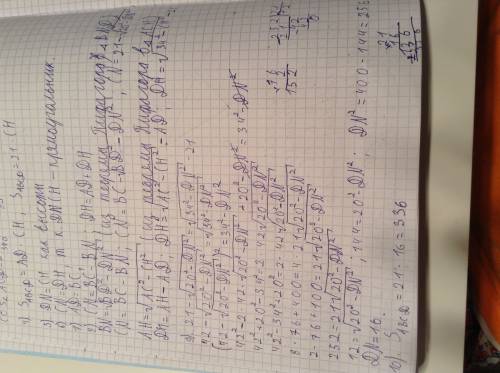 4) S_ABCD = AD · CH, S_ABCD = 21 · CH
5) DN = CH как высоты
6) CN = DH т.к. DHCN – прямоугольник
7) AD = BC
8) CN = BC - BN, DH = AD - DH
BN = √BD² - DN² (из теорема Пифагора в
CN = BC - BN, CN = BC - √BD² - DN², CN = 21 -
AH = √AC² - CH² (из теорема Пифагора в ΔACH)
DH = AH - AD, DH = √AC² - CH² - AD; DH = √34² - CH² -
9) 21 - √20² - DN² = √34² - DN² - 21
42 - √20² - DN² = √34² - DN²
(42 - √20² - DN²)² = 34² - DN²
42² - 2·42 · √20² - DN² + 20² - DN² = 34² - DN²
42² + 20² - 34² = 2 · 42 √20² - DN²
42² - 34² + 20² = 2 · 42 √20² - DN²
8 · 76 + 400 = 21 √20² - DN²
2 · 76 + 100 = 21 √20² - DN²
252 = 21 √20² - DN²
12 = √20² - DN²; 144 = 20² - DN²; DN² = 400 - 144 = 256
DN = 16.
10) S_ABCD = 21 · 16 = 336